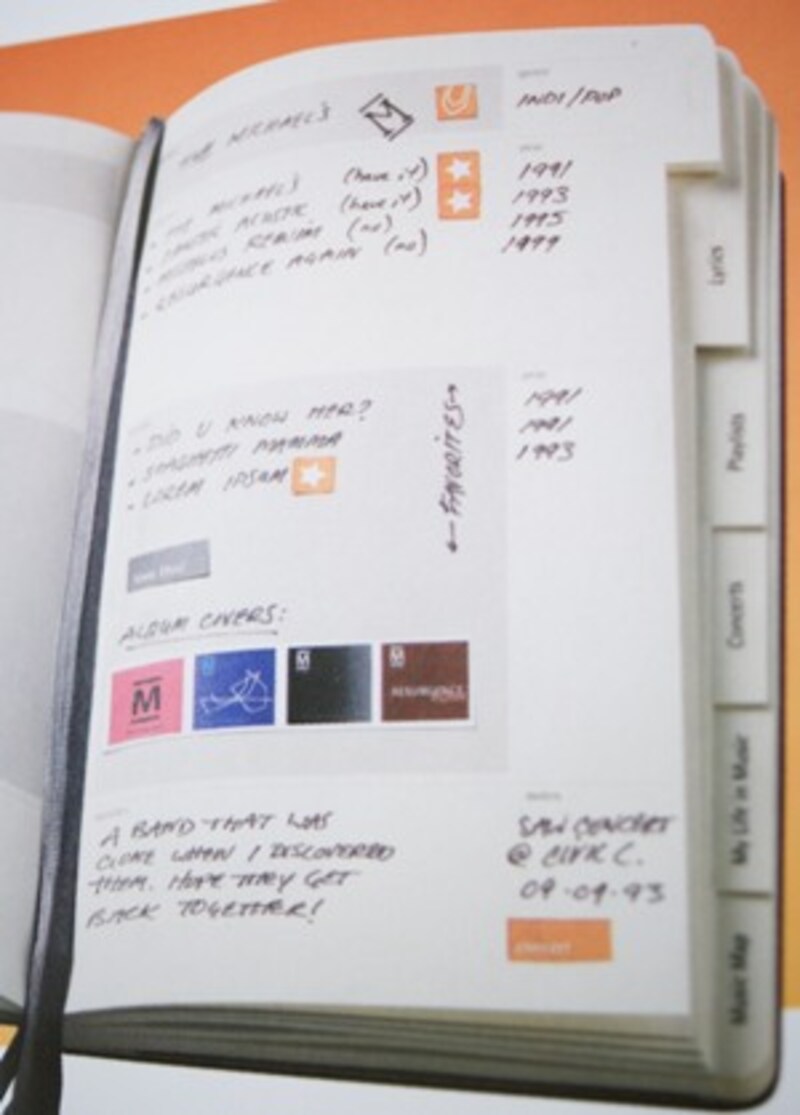 THE MICHAEL'S M
INDI/POP
THE MICHAEL'S (have it) 1991
(have it) 1993
REALISM (no) 1995
RESURGENCE AGAIN (no) 1999
DID U KNOW HER? 1991
SPAGHETTI MAMMA 1991
LOREM IPSUM 1993
← FAVORITES →
ALBUM COVERS:
M
M
M
RESURGENCE
A BAND THAT WAS
GONE WHEN I DISCOVERED
THEM. HOPE THEY GET
BACK TOGETHER!
SAW CONCERT
@ CIVIC C.
09-09-93
concert
Lyrics
Playlists
Concerts
My Life in Music
Music Map